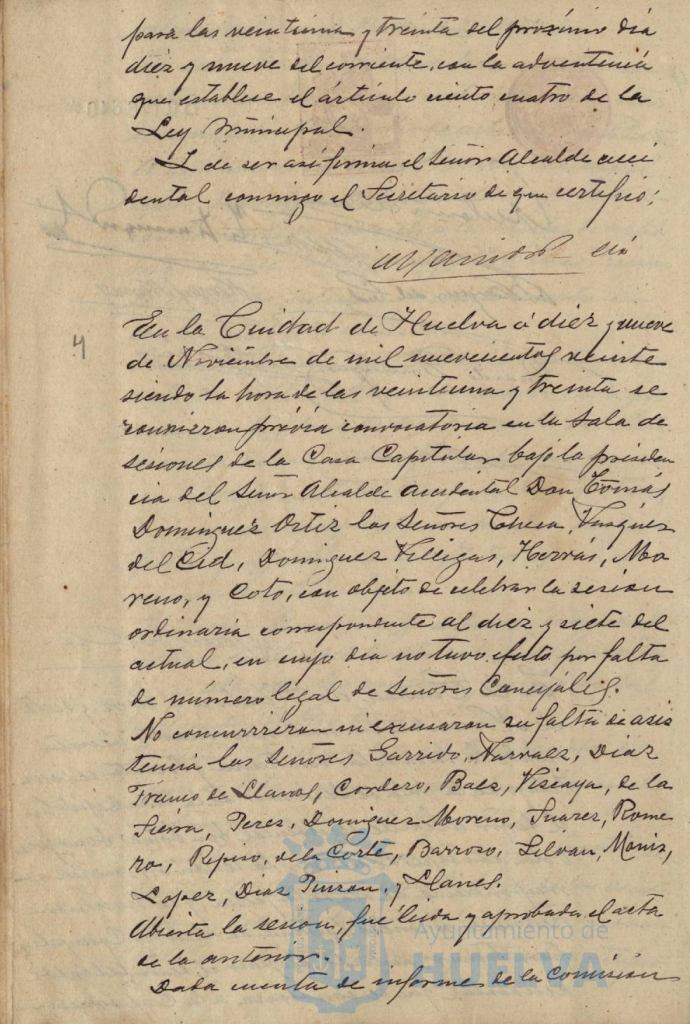 para las veintiuna y treinta del próximo dia
diez y nueve del corriente, con la advertencia
que establese el artículo ciento cuatro de la
Ley Municipal.
I de ser asi firma el Señor Alcalde acci
dental conmigo el Secretario de que certifico;
4
En la Ciudad de Huelva á diez y nueve
de Noviembre de mil nuevecientos veinte
siendo la hora de las veintiuna y treinta se
reunieron prévia convocatoria en la Sala de
sesiones de la Casa Capitular bajo la presiden
cia del Señor Alcalde accidental Don Tomás
Dominguez Ortiz los Señores Checa, Vasquez
del Cid, Dominguez Villegas, Herrás, Mo
reno, y Coto, con objeto de celebrar la sesion
ordinaria correspondente al diez y siete del
actual, en cuyo dia no tuvo efecto por falta
de número legal de Señores Concejáles.
No concurrieron ni excusaron su falta de asis
tencia los Señores Garrido, Narvaez, Diaz
Franco de Llanos, Cordero, Baez, Viscaya, de la
Sierra, Perez, Dominguez Moreno, Suarez, Rome
ro, Repiso, de la Corte, Barroso, Silvan, Moniz,
Lopez, Diaz Pinzon, y Llanes.
Abierta la sesion, fué leida y aprobada el acta
de la anterior.
Dada cuenta de informe de la Comision
Ayuntamiento de
HUELVA